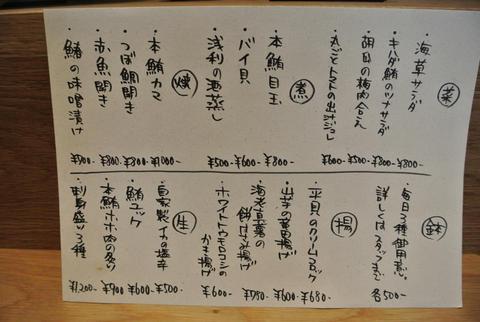 菜
・海草サラダ ¥800-
・キハダ鮪のツナサラダ ¥800-
・胡瓜の梅肉合え ¥500-
・丸ごとトマトの出汁ジュレ ¥600-
煮
・本鮪目玉 ¥800-
・バイ貝 ¥600-
・浅利の酒蒸し ¥500-
焼
・本鮪カマ ¥1,000-
・つぼ鯛開き ¥800-
・赤魚開き ¥800-
・鰆の味噌漬け ¥900-
鉢
・毎日3種御用意。
詳しくはスタッフまで 各500-
揚
・平貝のクリームコロッケ ¥680-
・山芋の竜田揚げ ¥600-
・海老真薯の
餅はさみ揚げ ¥780-
・ホワイトトウモロコシの
かき揚げ ¥600-
生
・自家製イカの塩辛 ¥500-
・鮪ユッケ ¥600-
・本鮪ホホ肉の炙り ¥900-
・刺身盛り3種 ¥1,200-